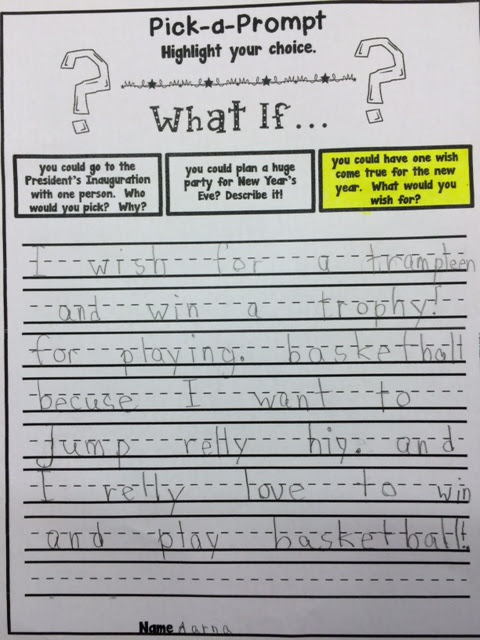 Pick-a-Prompt
Highlight your choice.
What If...
you could go to the
President's Inauguration
with one person. Who
would you pick? Why?
you could plan a huge
party for New Year's
Eve? Describe it!
you could have one wish
come true for the new
year. What would you
wish for?
I wish for a trampleen
and win a trophy!
for playing. basketball
becuse I want to
Jump relly hig. and
I relly love to win
and play basketball!
Name Aarna